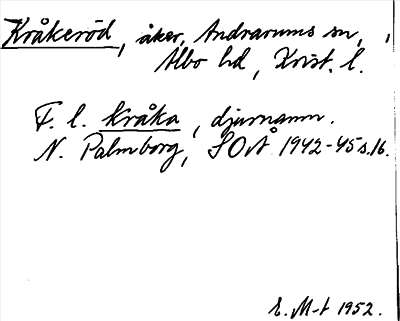 Kråkeröd, åker, Andrarums sn,
Albo hd, Krist. l.
F. l. kråka, djurnamn.
N. Palmborg, SOÅ 1942-45 s. 16.
E. M-t 1952.